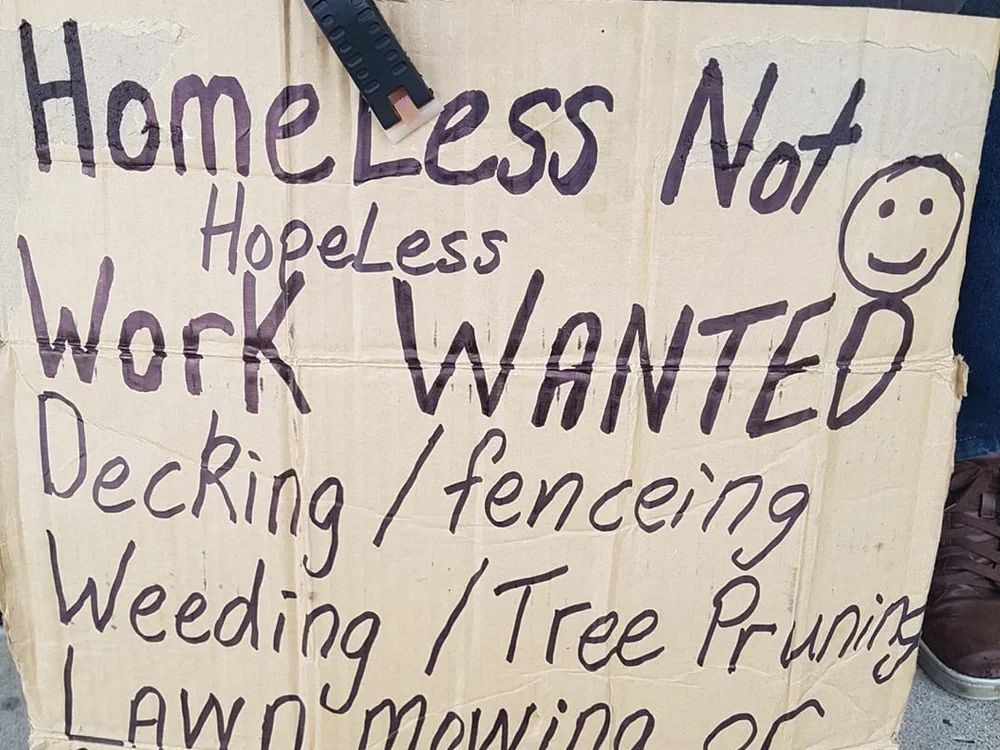 HomeLess Not
HopeLess
Work WANTED
Decking / fenceing
Weeding / Tree Pruning
LAwn mowing or